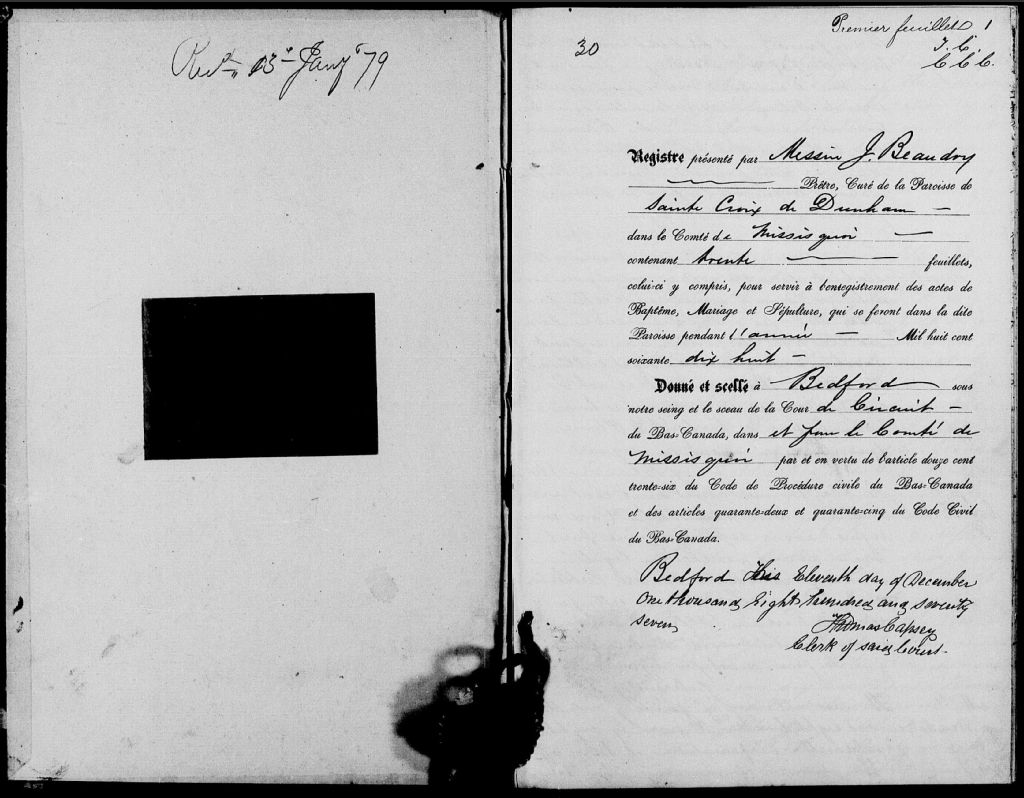 Rec'd 13th Jany '79
30
Premier feuillet 1
T. C.
C. C. C.
Registre présenté par Messire J. Beaudry
Prêtre, Curé de la Paroisse de
Sainte Croix de Dunham —
dans le Comté de Missisquoi —
contenant trente — feuillets,
celui-ci y compris, pour servir à l'enregistrement des actes de
Baptême, Mariage et Sépulture, qui se feront dans la dite
Paroisse pendant l'année — Mil huit cent
soixante dix huit —
Donné et scellé à Bedford sous
notre seing et le sceau de la Cour de Circuit —
du Bas-Canada, dans et pour le Comté de
Missisquoi par et en vertu de l'article douze cent
trente-six du Code de Procédure civile du Bas-Canada
et des articles quarante-deux et quarante-cinq du Code Civil
du Bas-Canada.
Bedford this Eleventh day of December
One thousand Eight hundred and seventy
seven
Thomas Capsey
Clerk of said Court.